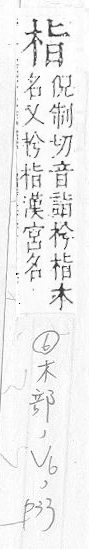 栺
倪制切音詣枍栺木
名又枍栺漢宮名
⑥木部, V6, p33